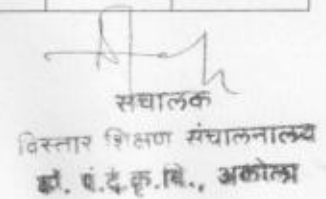 संचालक
विस्तार शिक्षण संचालनालय
डॉ. पं.दे.कृ.वि., अकोला